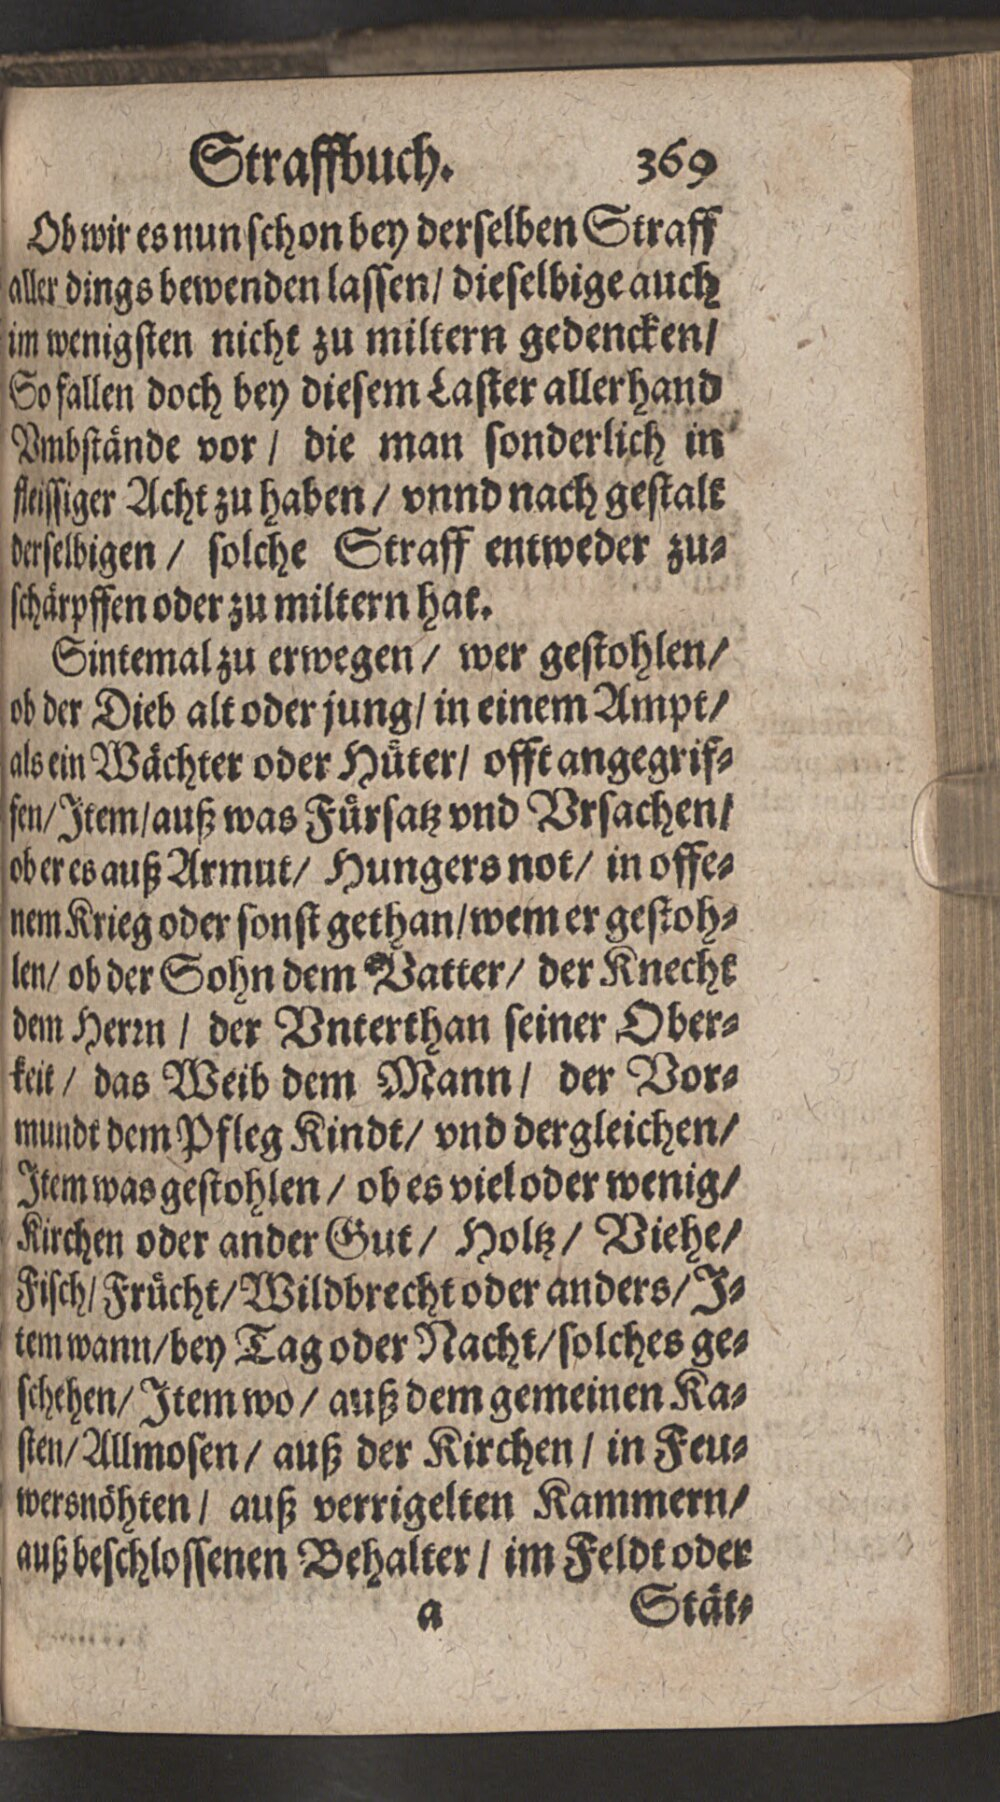 Straffbuch. 369
Ob wir es nun schon bey derselben Straff
aller dings bewenden lassen/ dieselbige auch
im wenigsten nicht zu miltern gedencken/
So fallen doch bey diesem Laster allerhand
Vmbstände vor / die man sonderlich in
fleissiger Acht zu haben / vnnd nach gestalt
derselbigen / solche Straff entweder zu-
schärpffen oder zu miltern hat.
Sintemal zu erwegen / wer gestohlen/
ob der Dieb alt oder jung/ in einem Ampt/
als ein Wächter oder Hüter/ offt angegrif-
fen/ Item/ auß was Fürsatz vnd Vrsachen/
ob er es auß Armut/ Hungers not/ in offe-
nem Krieg oder sonst gethan/ wem er gestoh-
len/ ob der Sohn dem Vatter/ der Knecht
dem Herrn / der Vnterthan seiner Ober-
keit / das Weib dem Mann / der Vor-
mundt dem Pfleg Kindt/ vnd dergleichen/
Item was gestohlen / ob es viel oder wenig/
Kirchen oder ander Gut/ Holtz/ Viehe/
Fisch/ Frücht/ Wildbrecht oder anders/ I-
tem wann/ bey Tag oder Nacht/ solches ge-
schehen/ Item wo / auß dem gemeinen Ka-
sten/ Allmosen / auß der Kirchen / in Feu-
wersnöhten / auß verrigelten Kammern/
auß beschlossenen Behalter / im Feldt oder
a Stät-